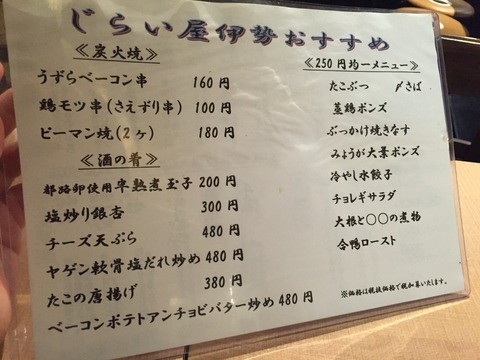 じらい屋伊勢おすすめ
≪炭火焼≫
うずらベーコン串 160円
鶏モツ串(さえずり串) 100円
ピーマン焼(2ヶ) 180円
≪酒の肴≫
都路卵使用半熟煮玉子 200円
塩炒り銀杏 300円
チーズ天ぷら 480円
ヤゲン軟骨塩だれ炒め 480円
たこの唐揚げ 380円
ベーコンポテトアンチョビバター炒め 480円
≪250円均一メニュー≫
たこぶつ 〆さば
蒸鶏ポンズ
ぶっかけ焼きなす
みょうが大葉ポンズ
冷やし水餃子
チョレギサラダ
大根と〇〇の煮物
合鴨ロースト
※価格は税抜価格で税加算いたします。